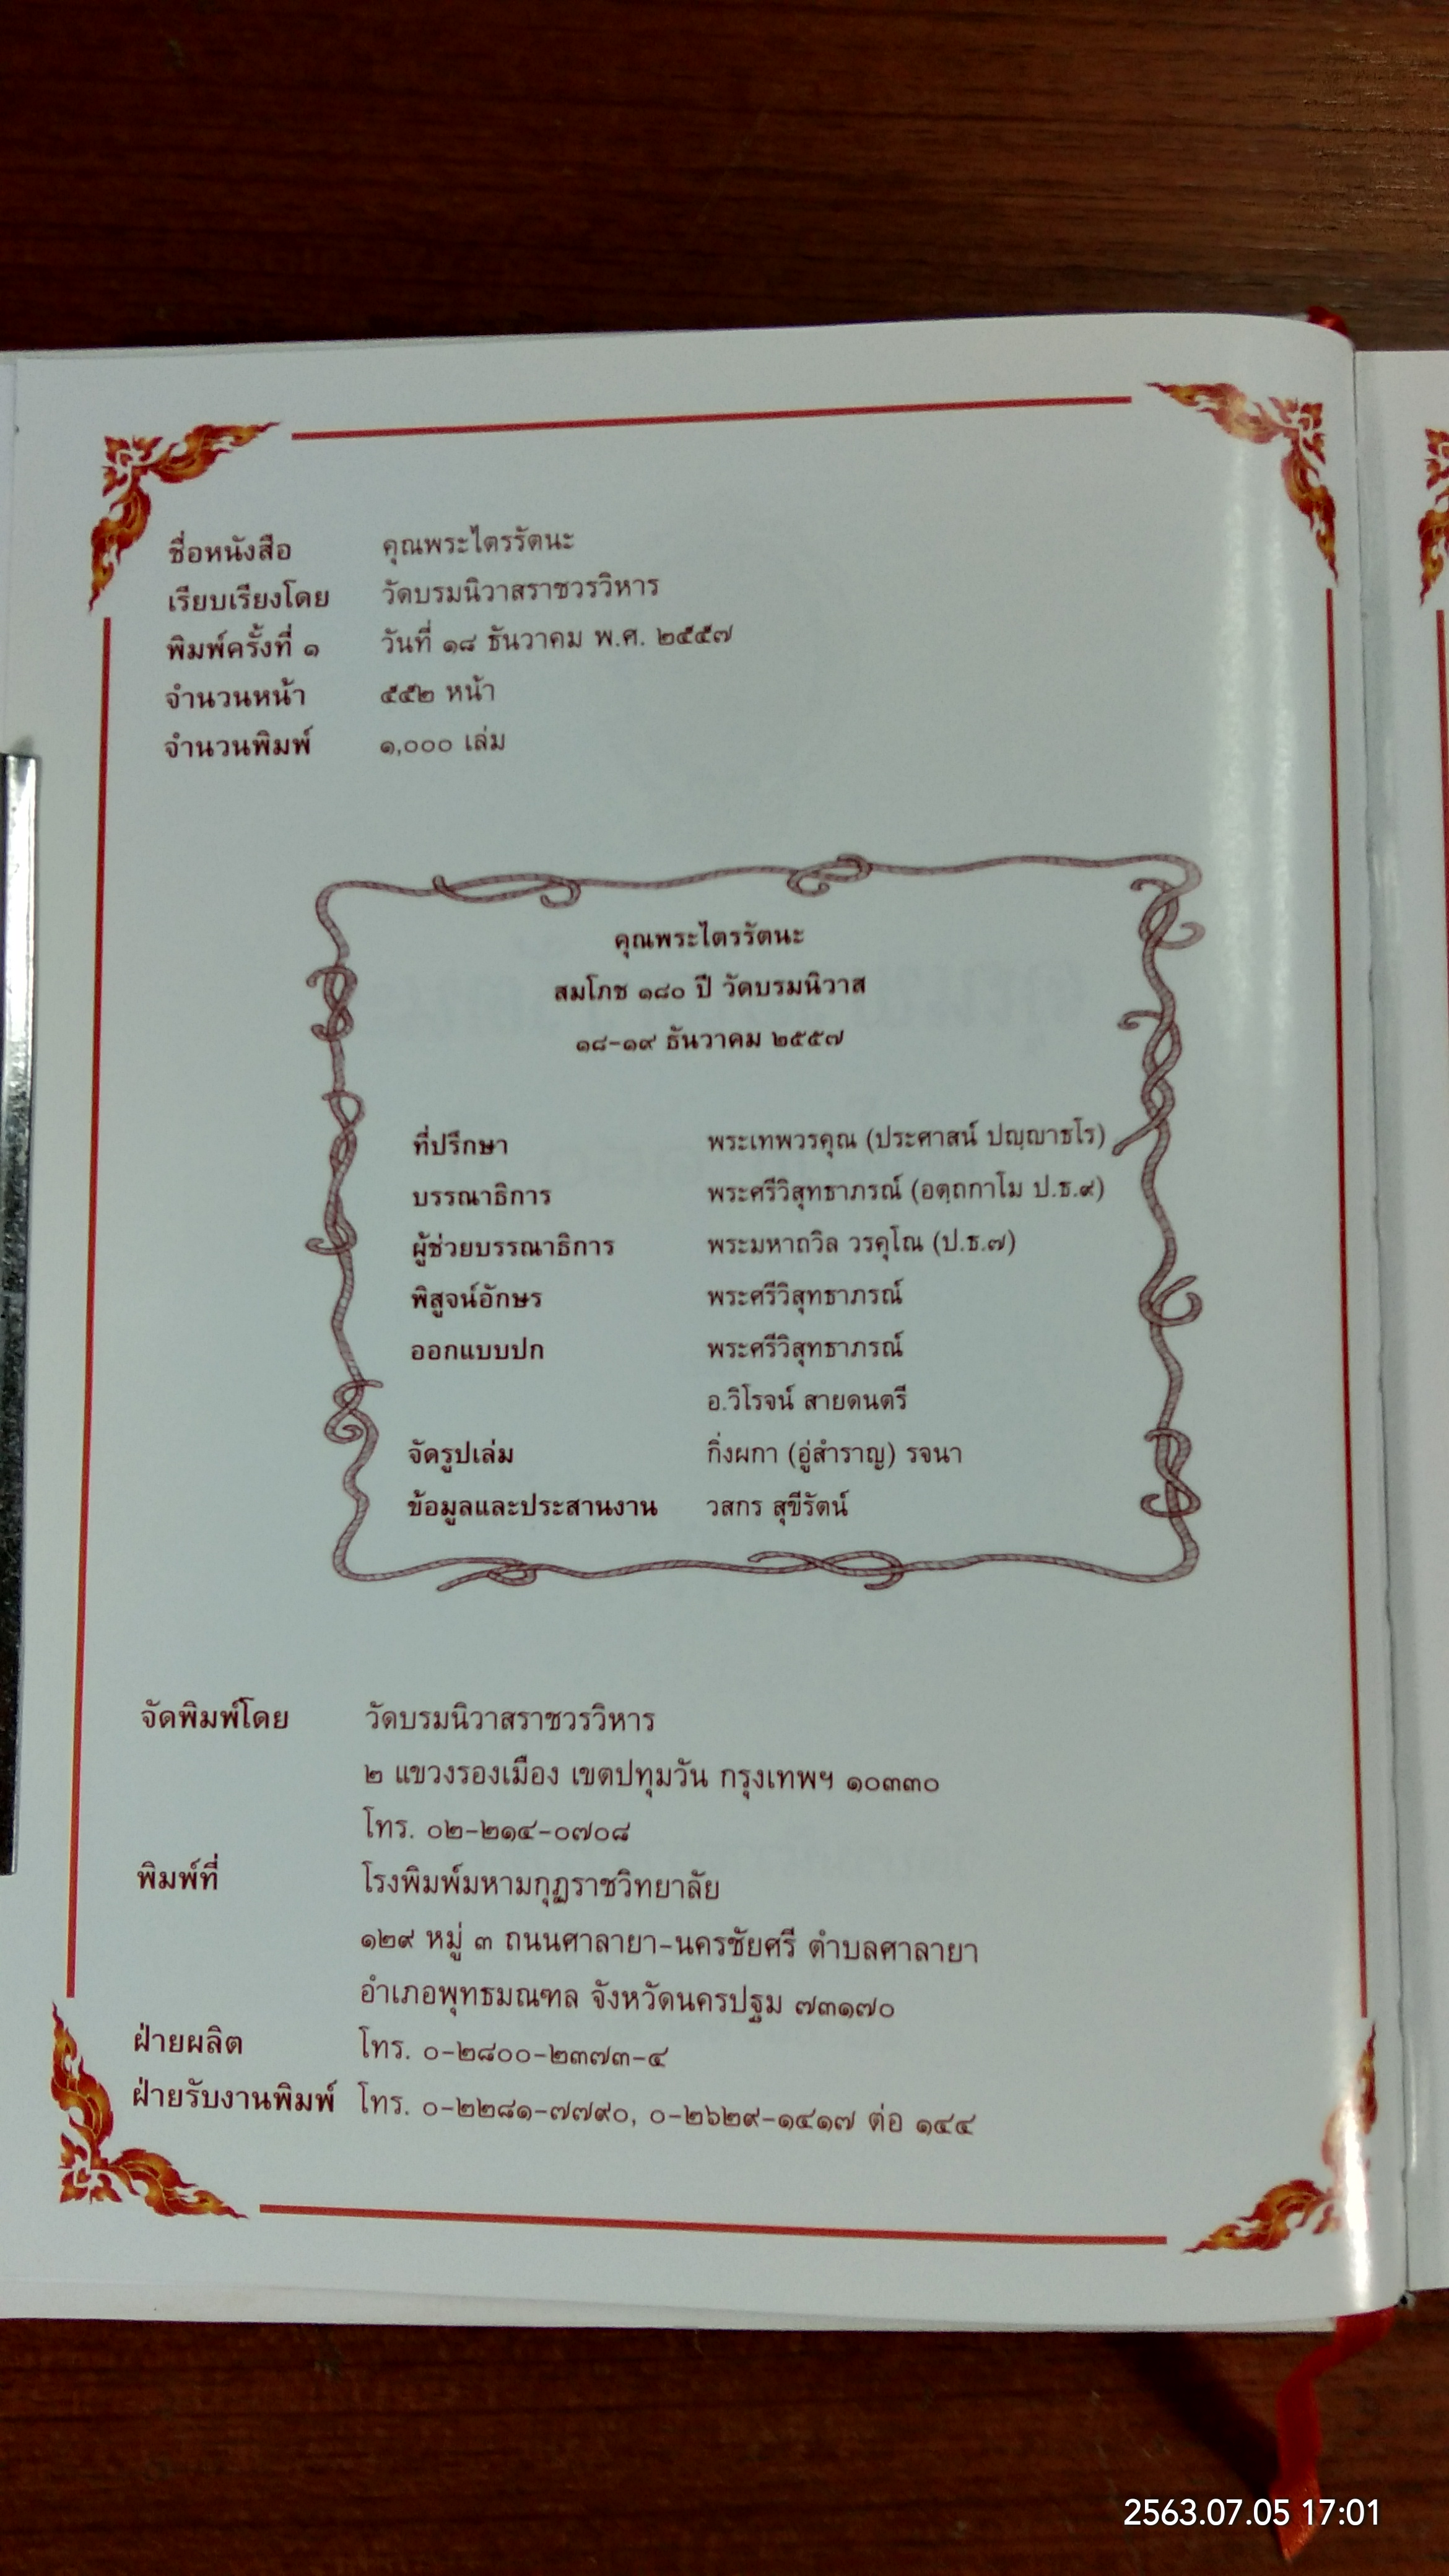 ชื่อหนังสือ คุณพระไตรรัตนะ
เรียบเรียงโดย วัดบรมนิวาสราชวรวิหาร
พิมพ์ครั้งที่ ๑ วันที่ ๑๘ ธันวาคม พ.ศ. ๒๕๕๗
จำนวนหน้า ๕๕๒ หน้า
จำนวนพิมพ์ ๑,๐๐๐ เล่ม
คุณพระไตรรัตนะ
สมโภช ๑๘๐ ปี วัดบรมนิวาส
๑๘-๑๙ ธันวาคม ๒๕๕๗
ที่ปรึกษา พระเทพวรคุณ (ประศาสน์ ปญฺญาธโร)
บรรณาธิการ พระศรีวิสุทธาภรณ์ (อตฺถกาโม ป.ธ.๙)
ผู้ช่วยบรรณาธิการ พระมหาถวิล วรคุโณ (ป.ธ.๗)
พิสูจน์อักษร พระศรีวิสุทธาภรณ์
ออกแบบปก พระศรีวิสุทธาภรณ์
อ.วิโรจน์ สายดนตรี
จัดรูปเล่ม กิ่งผกา (อู่สำราญ) รจนา
ข้อมูลและประสานงาน วสกร สุขีรัตน์
จัดพิมพ์โดย วัดบรมนิวาสราชวรวิหาร
๒ แขวงรองเมือง เขตปทุมวัน กรุงเทพฯ ๑๐๓๓๐
โทร. ๐๒-๒๑๔-๐๗๐๘
พิมพ์ที่ โรงพิมพ์มหามกุฏราชวิทยาลัย
๑๒๙ หมู่ ๓ ถนนศาลายา-นครชัยศรี ตำบลศาลายา
อำเภอพุทธมณฑล จังหวัดนครปฐม ๗๓๑๗๐
ฝ่ายผลิต โทร. ๐-๒๘๐๐-๒๓๗๓-๔
ฝ่ายรับงานพิมพ์ โทร. ๐-๒๒๘๑-๗๗๙๐, ๐-๒๖๒๙-๑๔๑๗ ต่อ ๑๔๔
2563.07.05 17:01